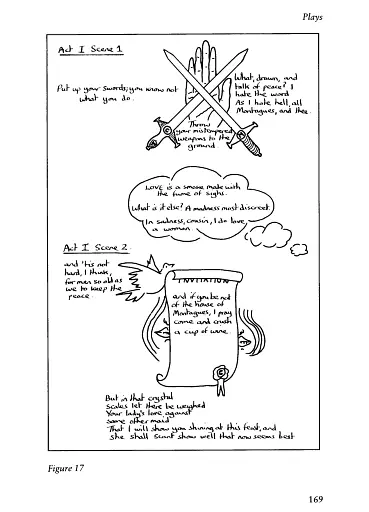 Plays
Act I Scene 1
Put up your swords; you know not
what you do.
What, drawn, and
talk of peace? I
hate the word
As I hate hell, all
Montagues, and thee.
Throw
your mistempered
weapons to the
ground.
LOVE is a smoke made with
the fume of sighs.
What is it else? A madness most discreet.
In sadness, cousin, I do love
a woman.
Act I Scene 2
and 'tis not
hard, I think,
for men so old as
we to keep the
peace.
INVITATION
and if you be not
of the house of
Montagues, I pray
come and crush
a cup of wine
But in that crystal
scales let there be weighed
Your lady's love against
some other maid
That I will show you shining at this feast, and
she shall scant show well that now seems best
Figure 17
169